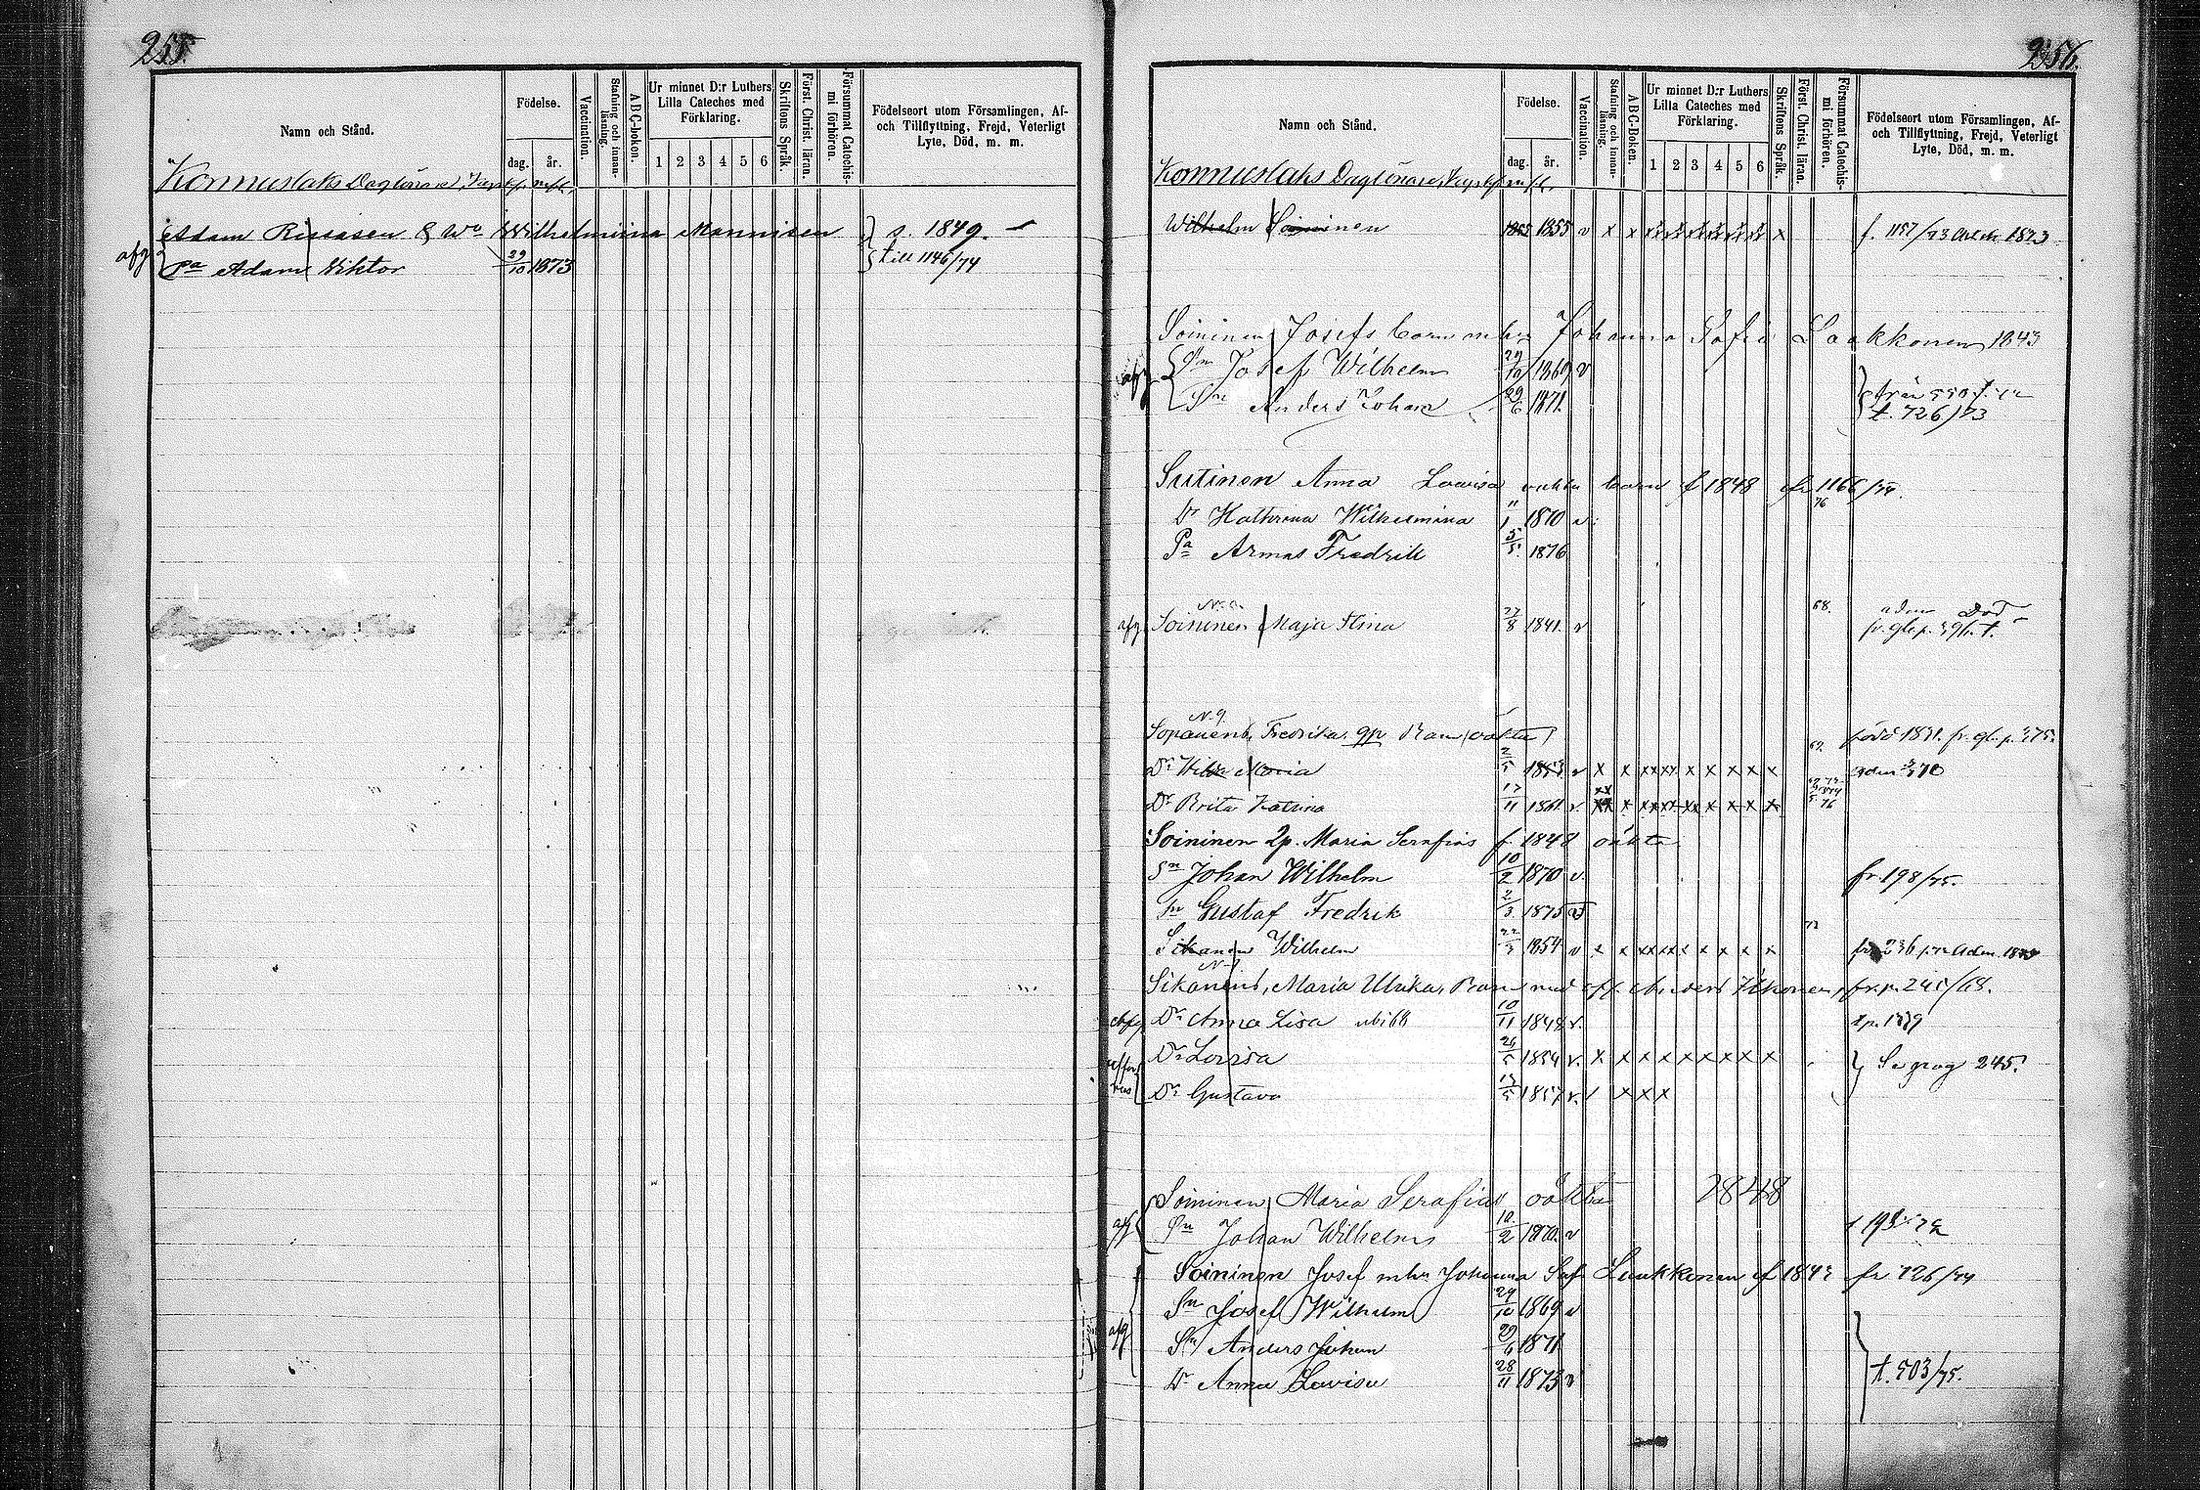 255.
Namn och Stånd.
Födelse.
dag. år.
Vaccination.
Stafning och innan-läsning.
A B C-boken.
Ur minnet D:r Luthers Lilla Cateches med Förklaring.
1 2 3 4 5 6
Skriftens Språk.
Först. Christ. läran.
Försummat Catechis-mi förhören.
Födelseort utom Församlingen, Af- och Tillflyttning, Frejd, Veterligt Lyte, Död, m. m.
Konnuslaks Daglönare,
Adam Rissasen & Wilhelmiina Manninen s. 1849. –
afg Pa Adam Viktor 29/10 1873 till 1146/74
256.
Namn och Stånd.
Födelse.
dag. år.
Vaccination.
Stafning och innan-läsning.
A B C-boken.
Ur minnet D:r Luthers Lilla Cateches med Förklaring.
1 2 3 4 5 6
Skriftens Språk.
Först. Christ. läran.
Försummat Catechis-mi förhören.
Födelseort utom Församlingen, Af- och Tillflyttning, Frejd, Veterligt Lyte, Död, m. m.
Konnuslaks Daglönare,
Wilhelm Soininen 1855 v x x x f. 1157/73 1873
Soininen Josefs barn mhu Johanna Sofia Laakkonen 1843
afg Sn Josef Wilhelm 29/10 1869 v
Sn Anders Johan 29/6 1871 från
t. 726/73
Sutinen Anna Lovisa oäkta barn f 1848 fr 1166/74.
Dr Kathrina Wilhelmina 11/1 1870 v 76
Pa Armas Fredrik 5/5 1876
afg Soininen Maja Stina 27/8 1841. v 68.
Sopanens, Fredrika Barn (oäkta) född 1831. fr. gl. p. 375.
Dr Maria 2/5 1853 v x x xx xx x x x x x 69.
Dr Brita Katrina 17/11 1861 v. xx x xx xx xx x x x x 76
Soininen 2p. Maria Serafias f. 1848 oäkta
Sn Johan Wilhelm 10/2 1870 v. fr. 198/75.
Sn Gustaf Fredrik 2/3 1875
Sikanen Wilhelm 22/3 1854 v x x xx xx x x x x x 72 236
Sikanens, Maria Ulrika, Barn med Anders Ikonen, fr. p. 245/68.
afg Dr Anna Lisa 10/11 1848 v. tp. 1379
Dr Lovisa 26/5 1854 v. x x x x x x x x x Se pag 245.
Dr Gustava 13/5 1857 v. / x x x
Soininen Maria Serafias oäkta 1848
afg Sn Johan Wilhelm 10/2 1870. v
Soininen Josef mhu Johanna Sof. Laakkonen f 1843 fr 726/74
Sn Josef Wilhelm 29/10 1869 v
afg Sn Anders Johan 29/6 1871
Dr Anna Lovisa 28/11 1873 v t. 503/75.